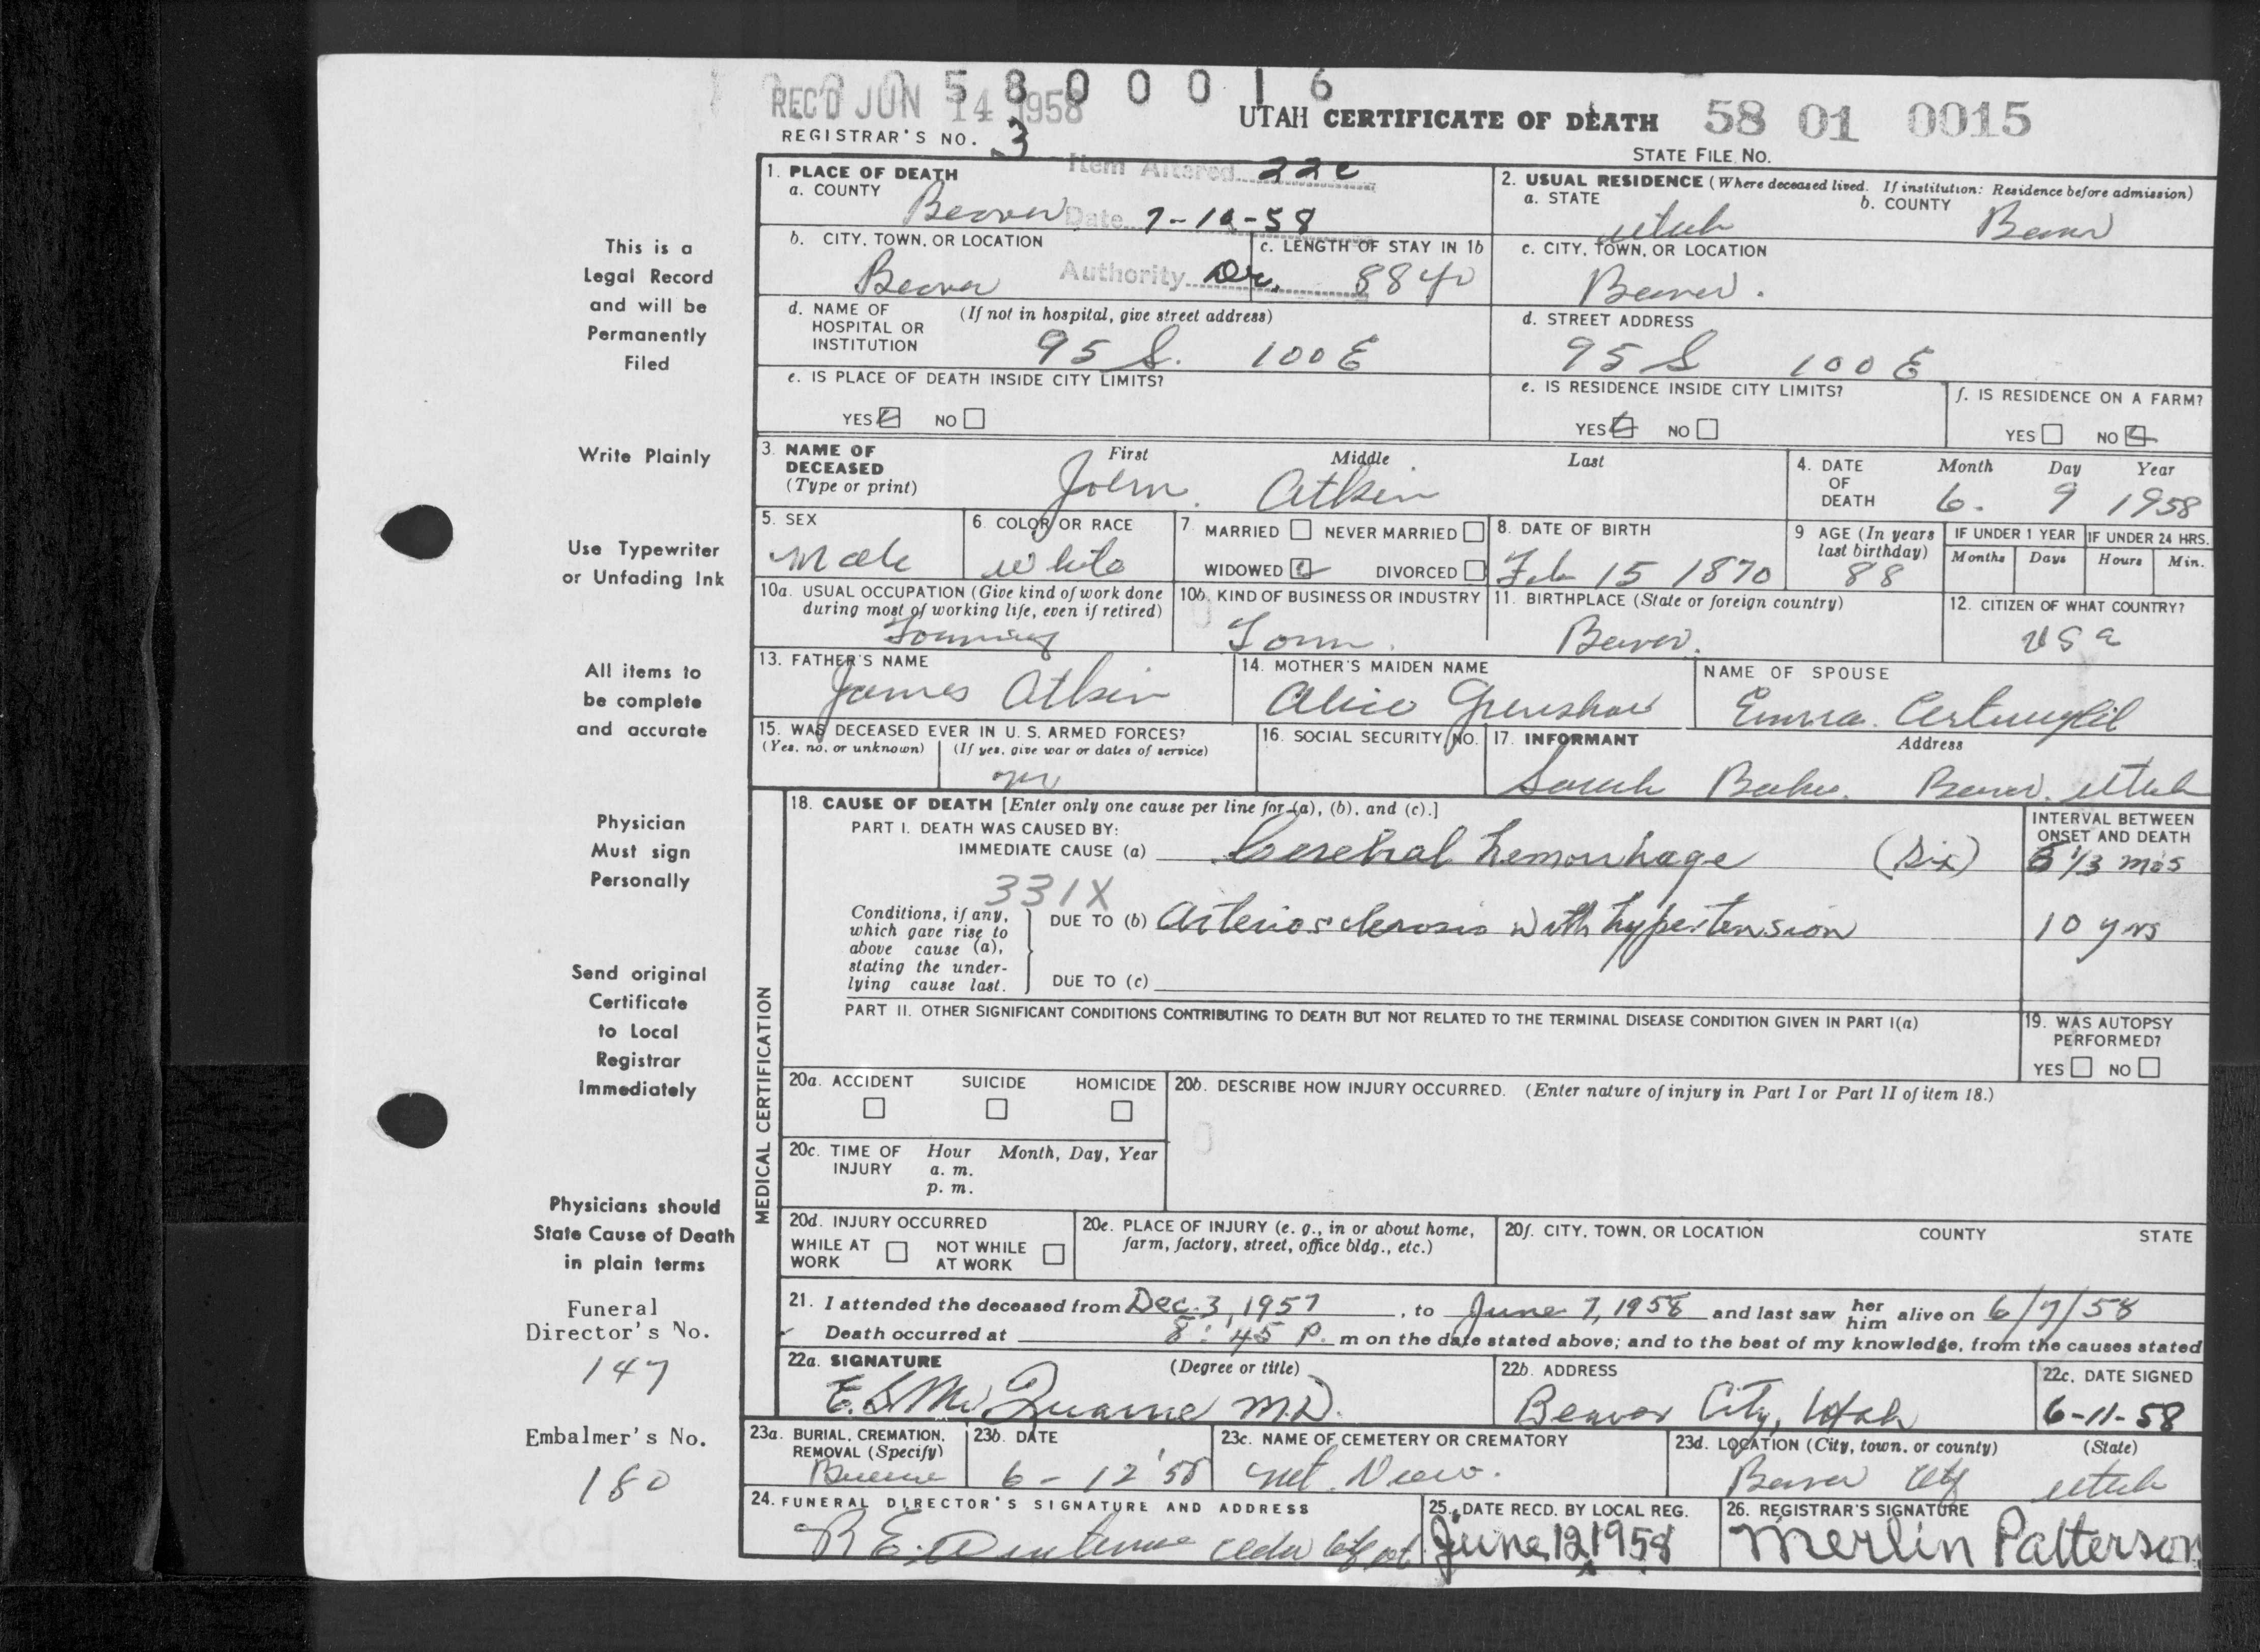 5 8 0 0 0 1 6
REC'D JUN 14 1958
UTAH CERTIFICATE OF DEATH 58 01 0015
REGISTRAR'S NO. 3
STATE FILE NO.
Item Altered 22c
Date 7-10-58
Authority Dr.
1. PLACE OF DEATH
a. COUNTY Beaver
2. USUAL RESIDENCE (Where deceased lived. If institution: Residence before admission)
a. STATE Utah b. COUNTY Beaver
b. CITY, TOWN, OR LOCATION Beaver
c. LENGTH OF STAY IN 1b 88 yr
c. CITY, TOWN, OR LOCATION Beaver.
d. NAME OF HOSPITAL OR INSTITUTION (If not in hospital, give street address) 95 S. 100 E
d. STREET ADDRESS 95 S 100 E
e. IS PLACE OF DEATH INSIDE CITY LIMITS?
YES NO
e. IS RESIDENCE INSIDE CITY LIMITS?
YES NO
f. IS RESIDENCE ON A FARM?
YES NO
3. NAME OF DECEASED (Type or print) First Middle Last
John Atkin
4. DATE OF DEATH Month Day Year
6. 9 1958
5. SEX Male
6. COLOR OR RACE White
7. MARRIED NEVER MARRIED
WIDOWED DIVORCED
8. DATE OF BIRTH Feb 15 1870
9 AGE (In years last birthday) 88
IF UNDER 1 YEAR Months Days
IF UNDER 24 HRS. Hours Min.
10a. USUAL OCCUPATION (Give kind of work done during most of working life, even if retired) Farming
10b. KIND OF BUSINESS OR INDUSTRY Farm.
11. BIRTHPLACE (State or foreign country) Beaver.
12. CITIZEN OF WHAT COUNTRY? USA
13. FATHER'S NAME James Atkin
14. MOTHER'S MAIDEN NAME Alice
NAME OF SPOUSE Emma.
15. WAS DECEASED EVER IN U. S. ARMED FORCES?
(Yes, no, or unknown) (If yes, give war or dates of service)
no
16. SOCIAL SECURITY NO.
17. INFORMANT Address
Sarah Beaver. Utah
MEDICAL CERTIFICATION
18. CAUSE OF DEATH [Enter only one cause per line for (a), (b), and (c).]
PART I. DEATH WAS CAUSED BY:
IMMEDIATE CAUSE (a) Cerebral hemorrhage (Six)
INTERVAL BETWEEN ONSET AND DEATH
6 1/3 mos
331X
Conditions, if any, which gave rise to above cause (a), stating the underlying cause last.
DUE TO (b) Arteriosclerosis with hypertension 10 yrs
DUE TO (c)
PART II. OTHER SIGNIFICANT CONDITIONS CONTRIBUTING TO DEATH BUT NOT RELATED TO THE TERMINAL DISEASE CONDITION GIVEN IN PART I(a)
19. WAS AUTOPSY PERFORMED?
YES NO
20a. ACCIDENT SUICIDE HOMICIDE
20b. DESCRIBE HOW INJURY OCCURRED. (Enter nature of injury in Part I or Part II of item 18.)
20c. TIME OF INJURY Hour Month, Day, Year
a. m.
p. m.
20d. INJURY OCCURRED
WHILE AT WORK NOT WHILE AT WORK
20e. PLACE OF INJURY (e. g., in or about home, farm, factory, street, office bldg., etc.)
20f. CITY, TOWN, OR LOCATION COUNTY STATE
21. I attended the deceased from Dec. 3, 1957, to June 7, 1958 and last saw her him alive on 6/7/58
Death occurred at 8:45 P. m on the date stated above; and to the best of my knowledge, from the causes stated
22a. SIGNATURE (Degree or title)
M.D.
22b. ADDRESS Beaver City, Utah
22c. DATE SIGNED 6-11-58
23a. BURIAL, CREMATION, REMOVAL (Specify)
23b. DATE 6-12 '58
23c. NAME OF CEMETERY OR CREMATORY Mt. View.
23d. LOCATION (City, town, or county) (State)
Beaver City Utah
24. FUNERAL DIRECTOR'S SIGNATURE AND ADDRESS
25. DATE RECD. BY LOCAL REG. June 12 1958
26. REGISTRAR'S SIGNATURE Merlin Patterson
This is a
Legal Record
and will be
Permanently
Filed
Write Plainly
Use Typewriter
or Unfading Ink
All items to
be complete
and accurate
Physician
Must sign
Personally
Send original
Certificate
to Local
Registrar
Immediately
Physicians should
State Cause of Death
in plain terms
Funeral
Director's No.
147
Embalmer's No.
180